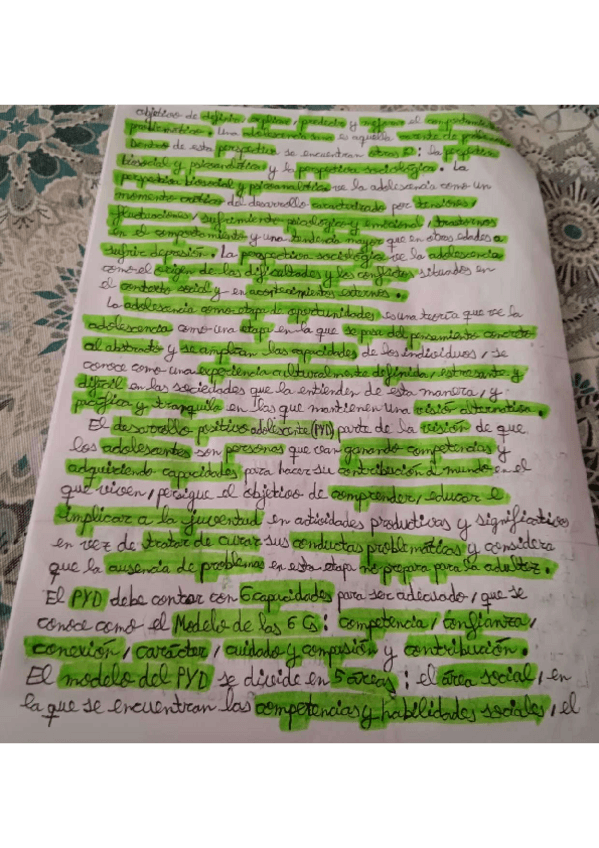 objetivo de definir, explicar, predecir y mejorar el comportamiento
problemático. Una adolescencia sana es aquella carente de problemas.
Dentro de esta perspectiva se encuentran otras 2: la perspectiva
biosocial y psicoanalítica y la perspectiva sociológica. La
perspectiva biosocial y psicoanalítica ve la adolescencia como un
momento crítico del desarrollo caracterizado por tensiones,
fluctuaciones, sufrimiento psicológico y emocional, trastornos
en el comportamiento y una tendencia mayor que en otras edades a
sufrir depresión. La perspectiva sociológica ve la adolescencia
como el origen de las dificultades y los conflictos situados en
el contexto social y en acontecimientos externos.
La adolescencia como etapa de oportunidades es una teoría que ve la
adolescencia como una etapa en la que se pasa del pensamiento concreto
al abstracto y se amplían las capacidades de los individuos, se
conoce como una experiencia culturalmente definida, estresante y
difícil en las sociedades que la entienden de esta manera, y
pacífica y tranquila en las que mantienen una visión alternativa.
El desarrollo positivo adolescente (PYD) parte de la visión de que
los adolescentes son personas que van ganando competencias y
adquiriendo capacidades para hacer su contribución al mundo en el
que viven, persigue el objetivo de comprender, educar e
implicar a la juventud en actividades productivas y significativas
en vez de tratar de curar sus conductas problemáticas y considera
que la ausencia de problemas en esta etapa no prepara para la adultez.
El PYD debe contar con 6 capacidades para ser adecuado, que se
conoce como el Modelo de las 6 Cs: competencia, confianza,
conexión, carácter, cuidado y compasión y contribución.
El modelo del PYD se divide en 5 áreas: el área social, en
la que se encuentran las competencias y habilidades sociales, el